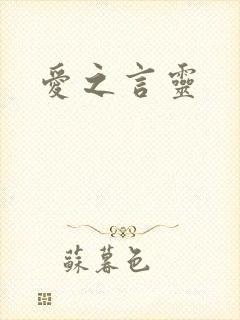 愛之言靈
蘇暮色